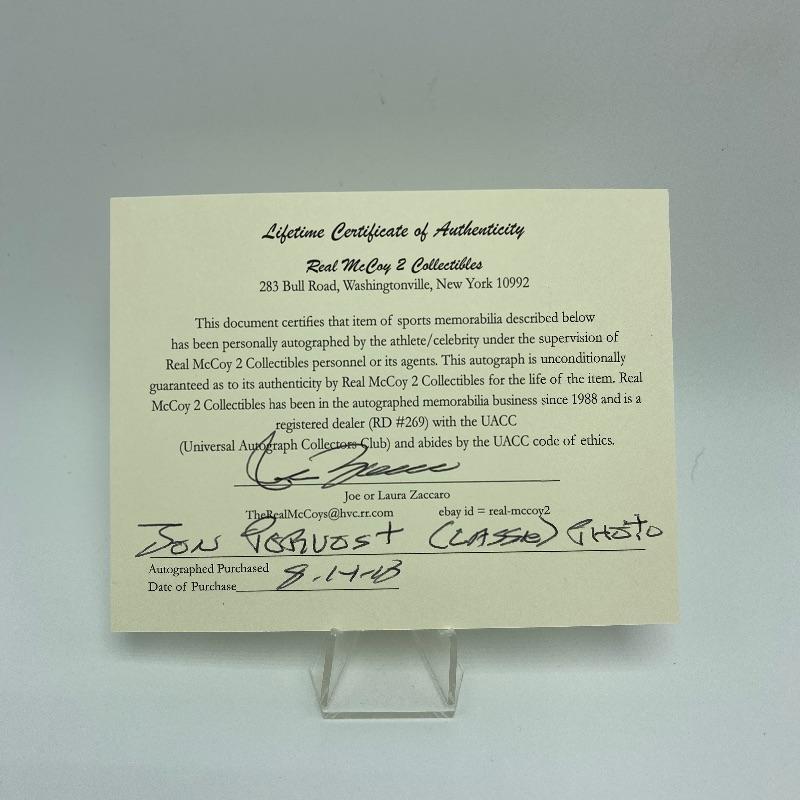 Lifetime Certificate of Authenticity
Real McCoy 2 Collectibles
283 Bull Road, Washingtonville, New York 10992
This document certifies that item of sports memorabilia described below
has been personally autographed by the athlete/celebrity under the supervision of
Real McCoy 2 Collectibles personnel or its agents. This autograph is unconditionally
guaranteed as to its authenticity by Real McCoy 2 Collectibles for the life of the item. Real
McCoy 2 Collectibles has been in the autographed memorabilia business since 1988 and is a
registered dealer (RD #269) with the UACC
(Universal Autograph Collectors Club) and abides by the UACC code of ethics.
Joe or Laura Zaccaro
TheRealMcCoys@hvc.rr.com ebay id = real-mccoy2
JON PERVOST (LASSIE) PHOTO
Autographed Purchased
Date of Purchase 8-14-13